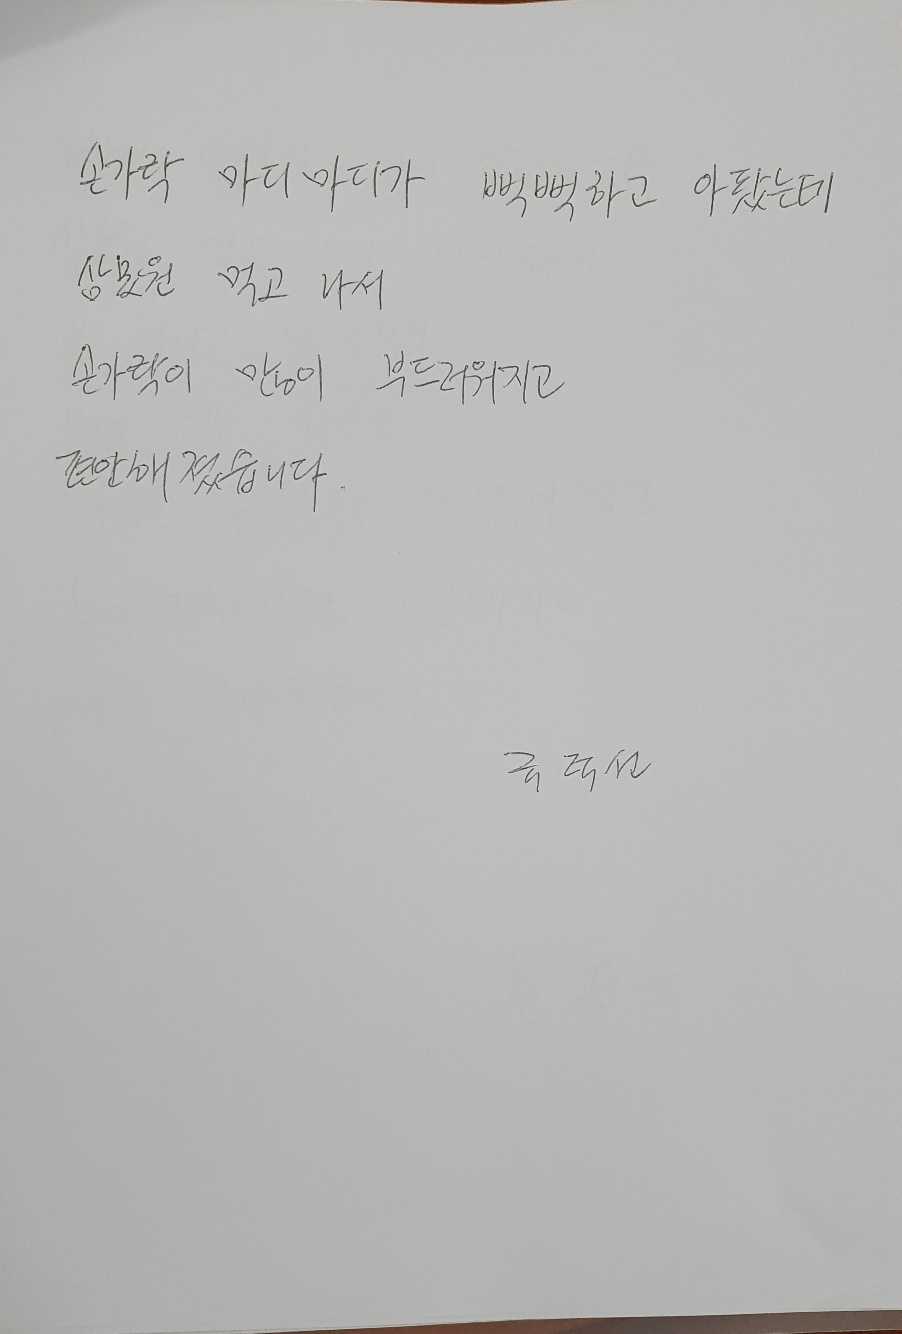 손가락 마디마디가 뻑뻑하고 아팠는데
먹고 나서
손가락이 많이 부드러워지고
편안해졌습니다.